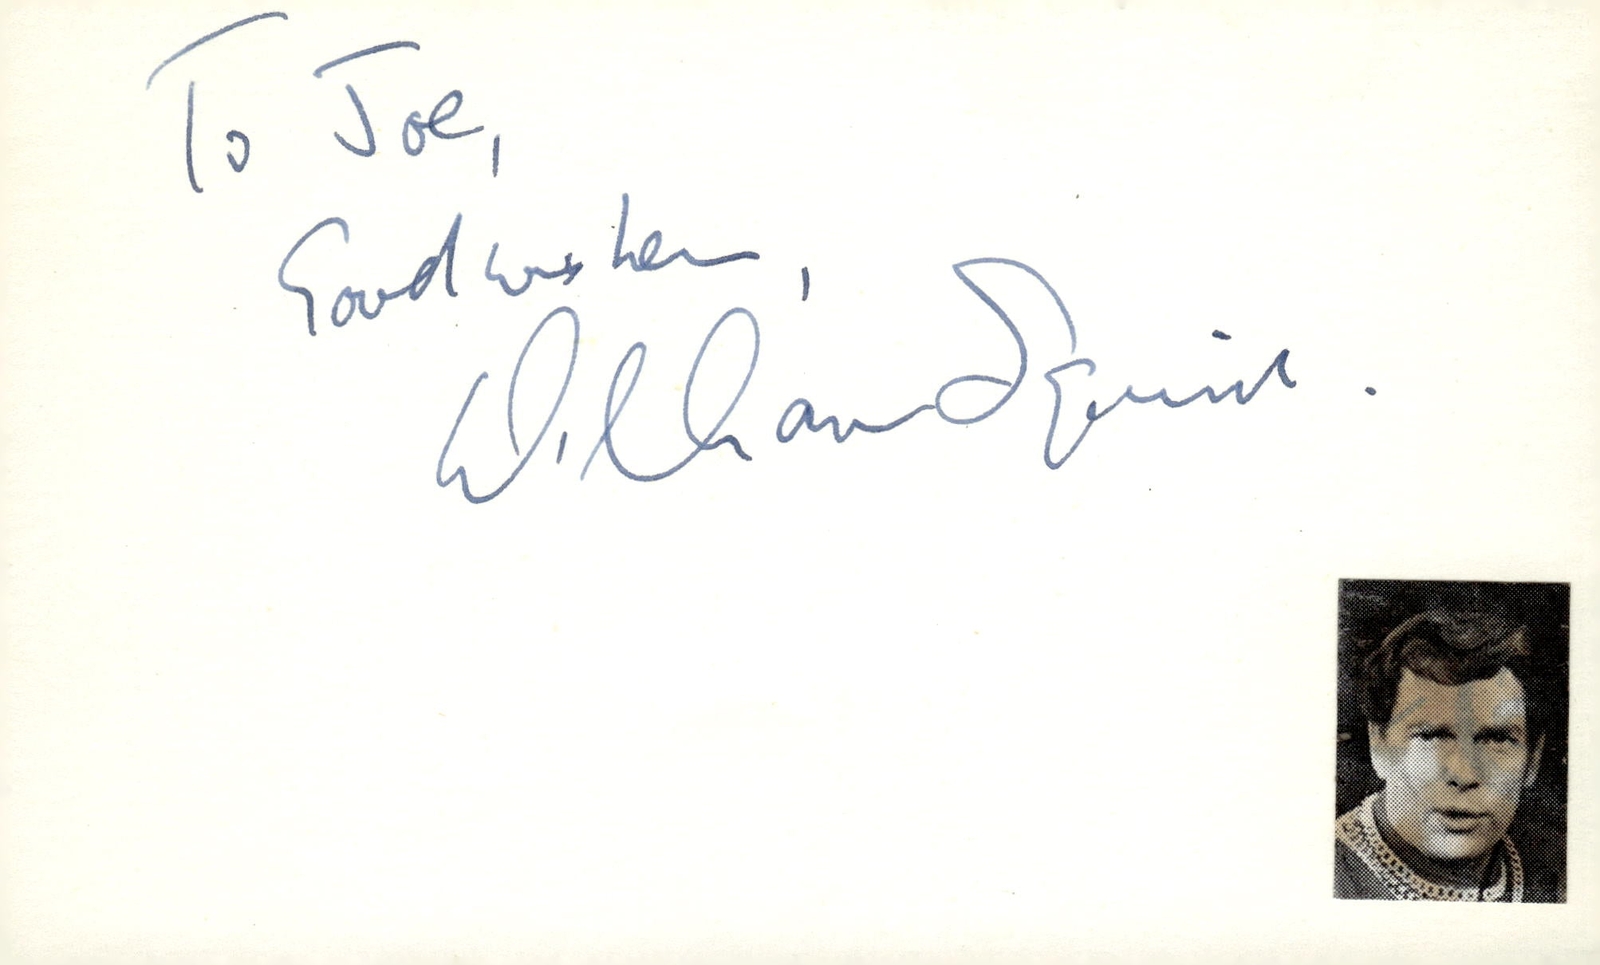 To Joe,
Good wishes,
William Squire.